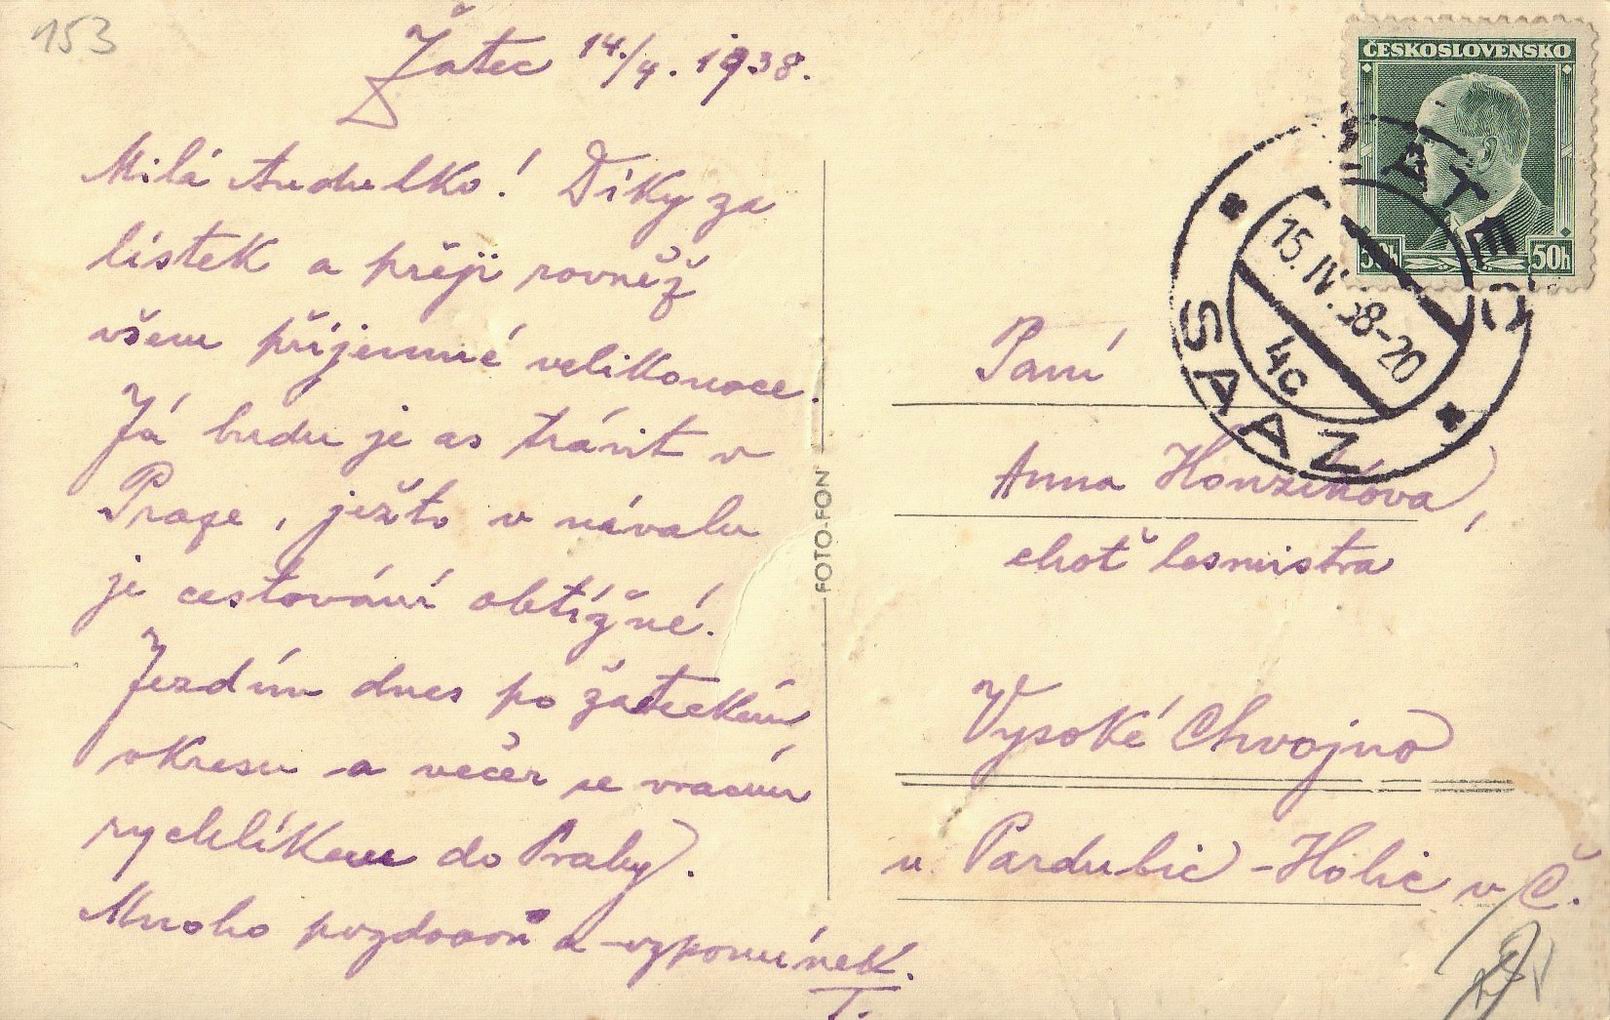 153
Žatec 14./4. 1938.
Milá Andulko! Díky za
lístek a přeji rovněž
všem příjemné velikonoce.
Já budu je as trávit v
Praze, ježto v návalu
je cestování obtížné.
Jezdím dnes po žateckém
okresu a večer se vracím
rychlíkem do Prahy.
Mnoho pozdravů a vzpomínek.
T.
FOTO-FON
ČESKOSLOVENSKO
50h 50h
ŽATEC
15.IV.38-20
4c
SAAZ
Paní
Anna Honzíková,
choť lesmistra
Vysoké Chvojno
u Pardubic - Holic v Č.